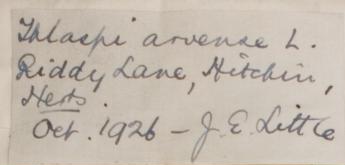 Thlaspi arvense L.
Riddy Lane, Hitchin,
Herts.
Oct. 1926 - J. E. Little